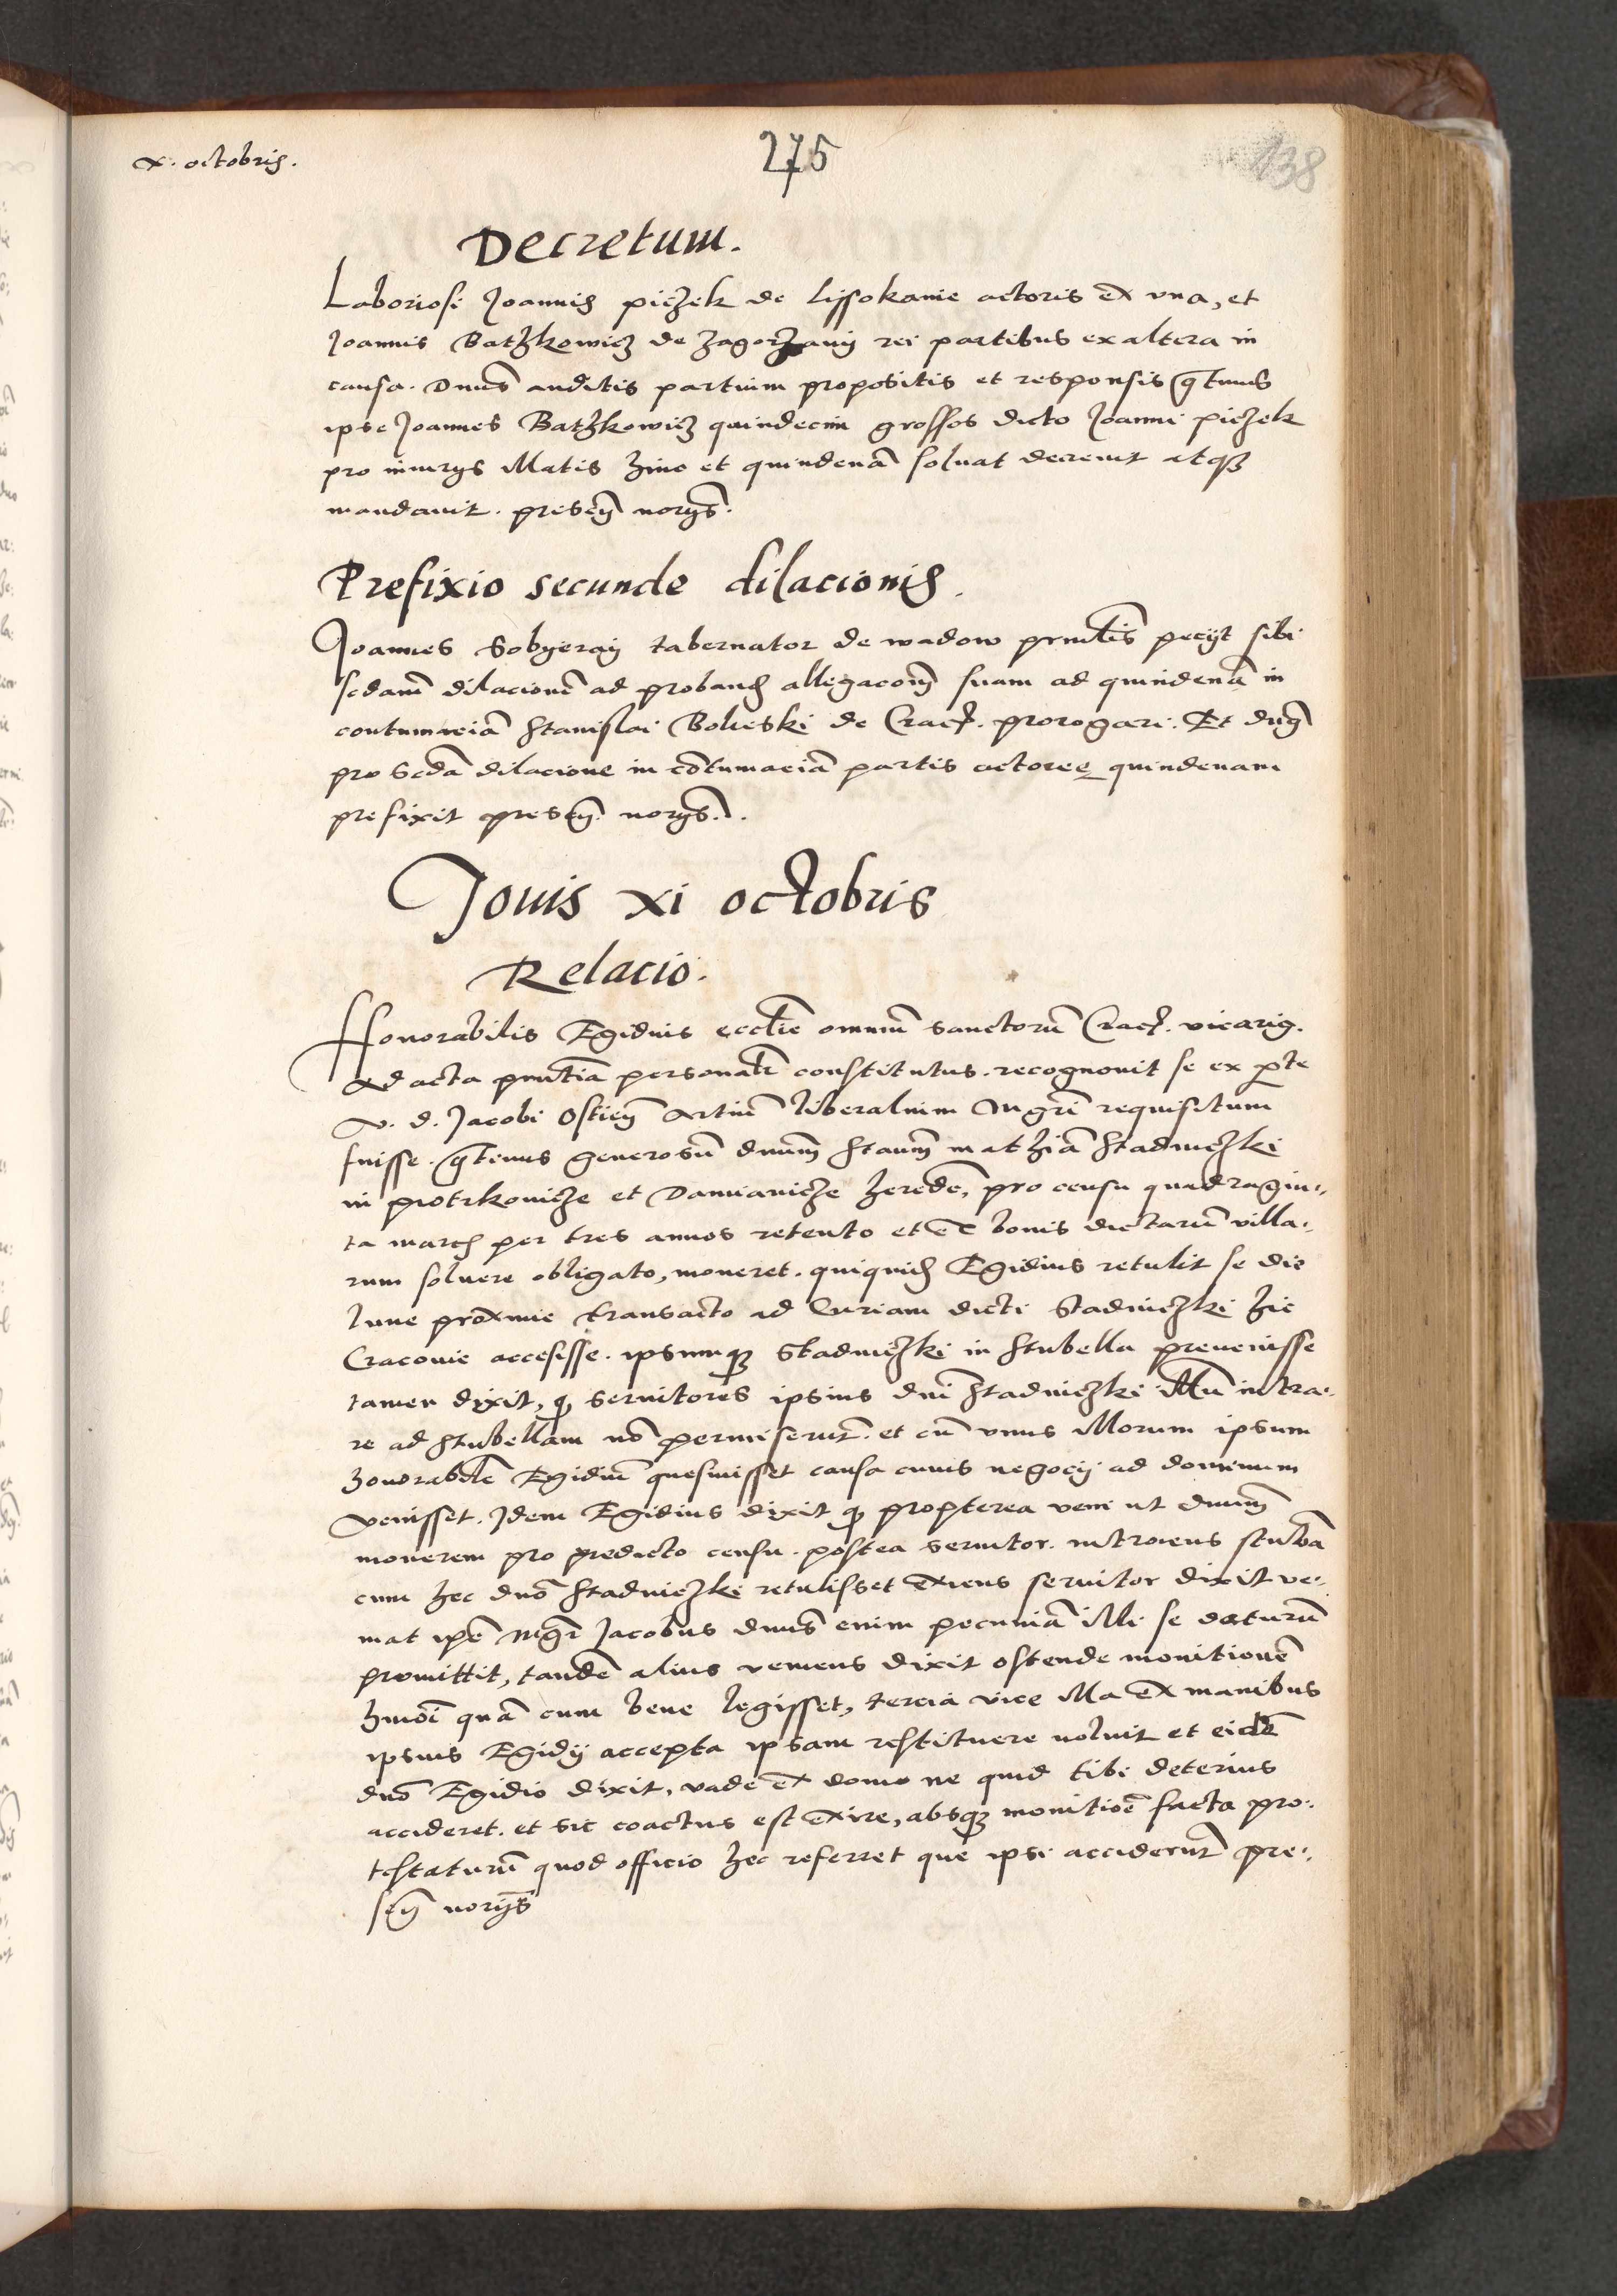 x. octobris.
275
138
Decretum.
Laboriosi Joannis piczek de lissokanie actoris ex vna, et
Joannis Batzkowicz de zagorzany rei partibus ex altera in
causa. Dnus auditis partium propositis et responsis qtnus
ipse Joannes Batzkowicz quindecim grossos dicto Joanni piczek
pro iniurys illatis hinc et quindenā soluat decreuit atqʒ
mandauit. presen̄ norys̄.
Prefixio secunde dilacionis.
Joannes Sobyeray tabernator de wadow prnt̄is pecyt sibi
scdam̄ dilacionē ad proband allegacom̄ suam ad quindenā in
contumaciā Stanislai Bolieski de Crac. prorogari. Et dn̄s
pro scdā dilacione in cōtumaciā partis actoree quindenam
prefixit presen̄ norys̄.
Jouis xi octobris
Relacio.
Honorabilis Egidius ecclīe omniū sanctorū Crac. vicarig.
ad acta pnt̄ia personalr̄ constitutus. recognouit se ex pt̄e
v. d. Jacobi Ostien̄ artiū liberalium mgrī requisitum
fuisse. qtenus generosū dnum̄ Staum̄ matziā Stadniczki
in piotrkouicze et Damianicze herede, pro censu quadragin-
ta marc per tres annos retento et ex bonis dictarū villa-
rum soluere obligato, moneret. quiquid Egidius retulit se die
lune proxime transacto ad Curiam dicti Stadniczki hic
Cracouie accesisse. ipsumqʒ Stadniczki in stubella preuenisse
tamen dixit, q seruitores ipsius dnī Stadniczki illū intra-
re ad stubellam nō permiserūt. et cū vnus illorum ipsum
honorabilē Egidiū quesiuisset causa cuius negocij ad dominum
venisset. Idem Egidius dixit q propterea veni ut dnum̄
monerem pro predicto censu. postea seruitor. introiens stubā
cum hec dnō Stadniczki retulisset exiens seruitor dixit ve-
niat ipē mgr̄ Jacobus dnus̄ enim pecuniā illi se daturū
promittit, tandē alius veniens dixit ostende monitionē
hmōi quā cum bene legisset, tercia vice illa ex manibus
ipsius Egidij accepta ipsam restituere noluit et eidē
dnō Egidio dixit, vade ex domo ne quid tibi deterius
accideret. et sic coactus est exire, absqʒ monitiōe facta pro-
testaturū quod officio hec referret que ipsi acciderūt pre-
sen̄ norys̄